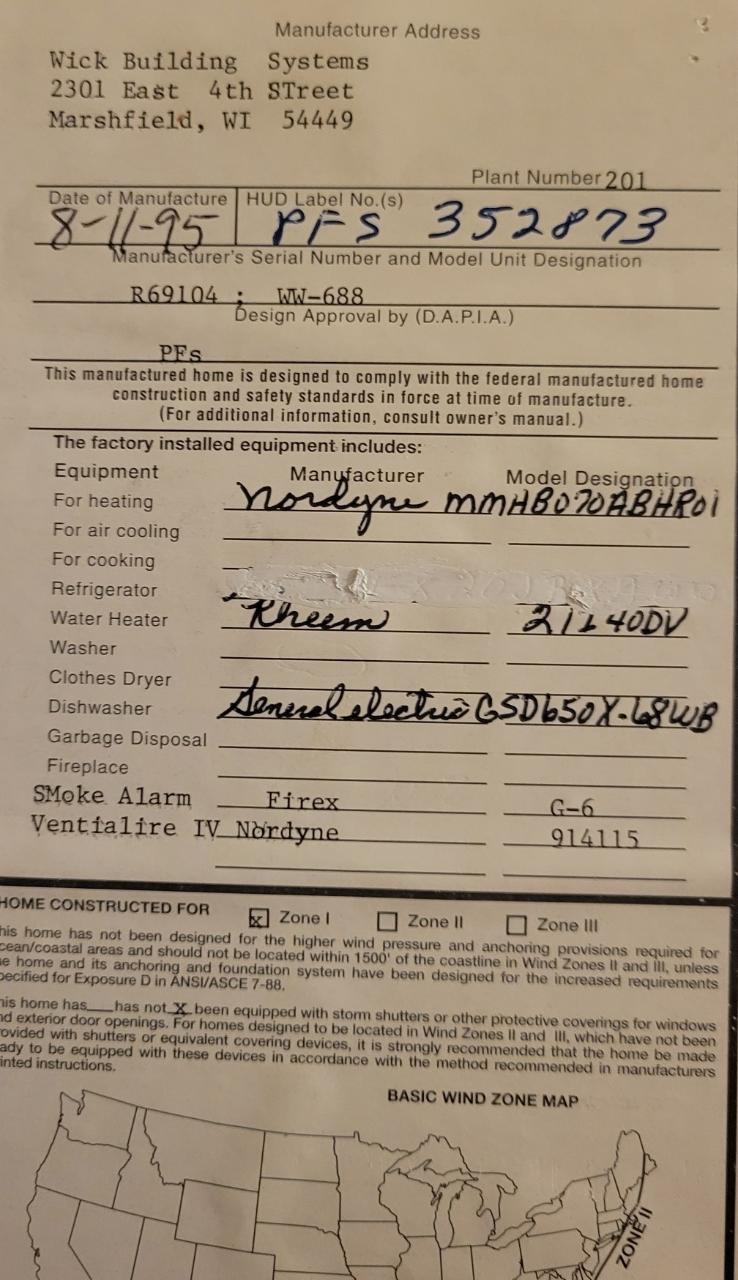 Manufacturer Address
Wick Building Systems
2301 East 4th STreet
Marshfield, WI 54449
Plant Number 201
Date of Manufacture HUD Label No.(s)
8-11-95 PFS 352873
Manufacturer's Serial Number and Model Unit Designation
R69104 ; WW-688
Design Approval by (D.A.P.I.A.)
PFs
This manufactured home is designed to comply with the federal manufactured home
construction and safety standards in force at time of manufacture.
(For additional information, consult owner's manual.)
The factory installed equipment includes:
Equipment Manufacturer Model Designation
For heating Nordyne MMHB070ABHR01
For air cooling
For cooking
Refrigerator
Water Heater Rheem 21L40DV
Washer
Clothes Dryer
Dishwasher General electric GSD650X-68WB
Garbage Disposal
Fireplace
SMoke Alarm Firex G-6
Ventialire IV Nordyne 914115
HOME CONSTRUCTED FOR x Zone I Zone II Zone III
his home has not been designed for the higher wind pressure and anchoring provisions required for
cean/coastal areas and should not be located within 1500' of the coastline in Wind Zones II and III, unless
e home and its anchoring and foundation system have been designed for the increased requirements
pecified for Exposure D in ANSI/ASCE 7-88.
his home has has not X been equipped with storm shutters or other protective coverings for windows
nd exterior door openings. For homes designed to be located in Wind Zones II and III, which have not been
rovided with shutters or equivalent covering devices, it is strongly recommended that the home be made
ady to be equipped with these devices in accordance with the method recommended in manufacturers
inted instructions.
BASIC WIND ZONE MAP
ZONE II